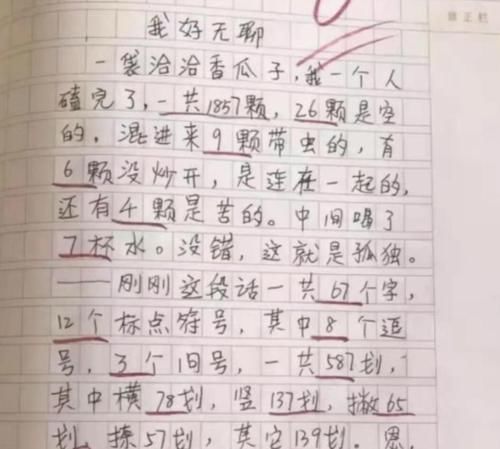 修正栏
我好无聊
一袋洽洽香瓜子，我一个人
磕完了，一共1857颗，26颗是空
的，混进来9颗带虫的，有
6颗没炒开，是连在一起的，
还有4颗是苦的。中间喝了
7杯水。没错，这就是孤独。
——刚刚这段话一共67个字，
12个标点符号，其中8个逗
号，3个旧号，一共587划，
其中横78划，竖137划，撇65
划，捺57划，其它139划。恩，